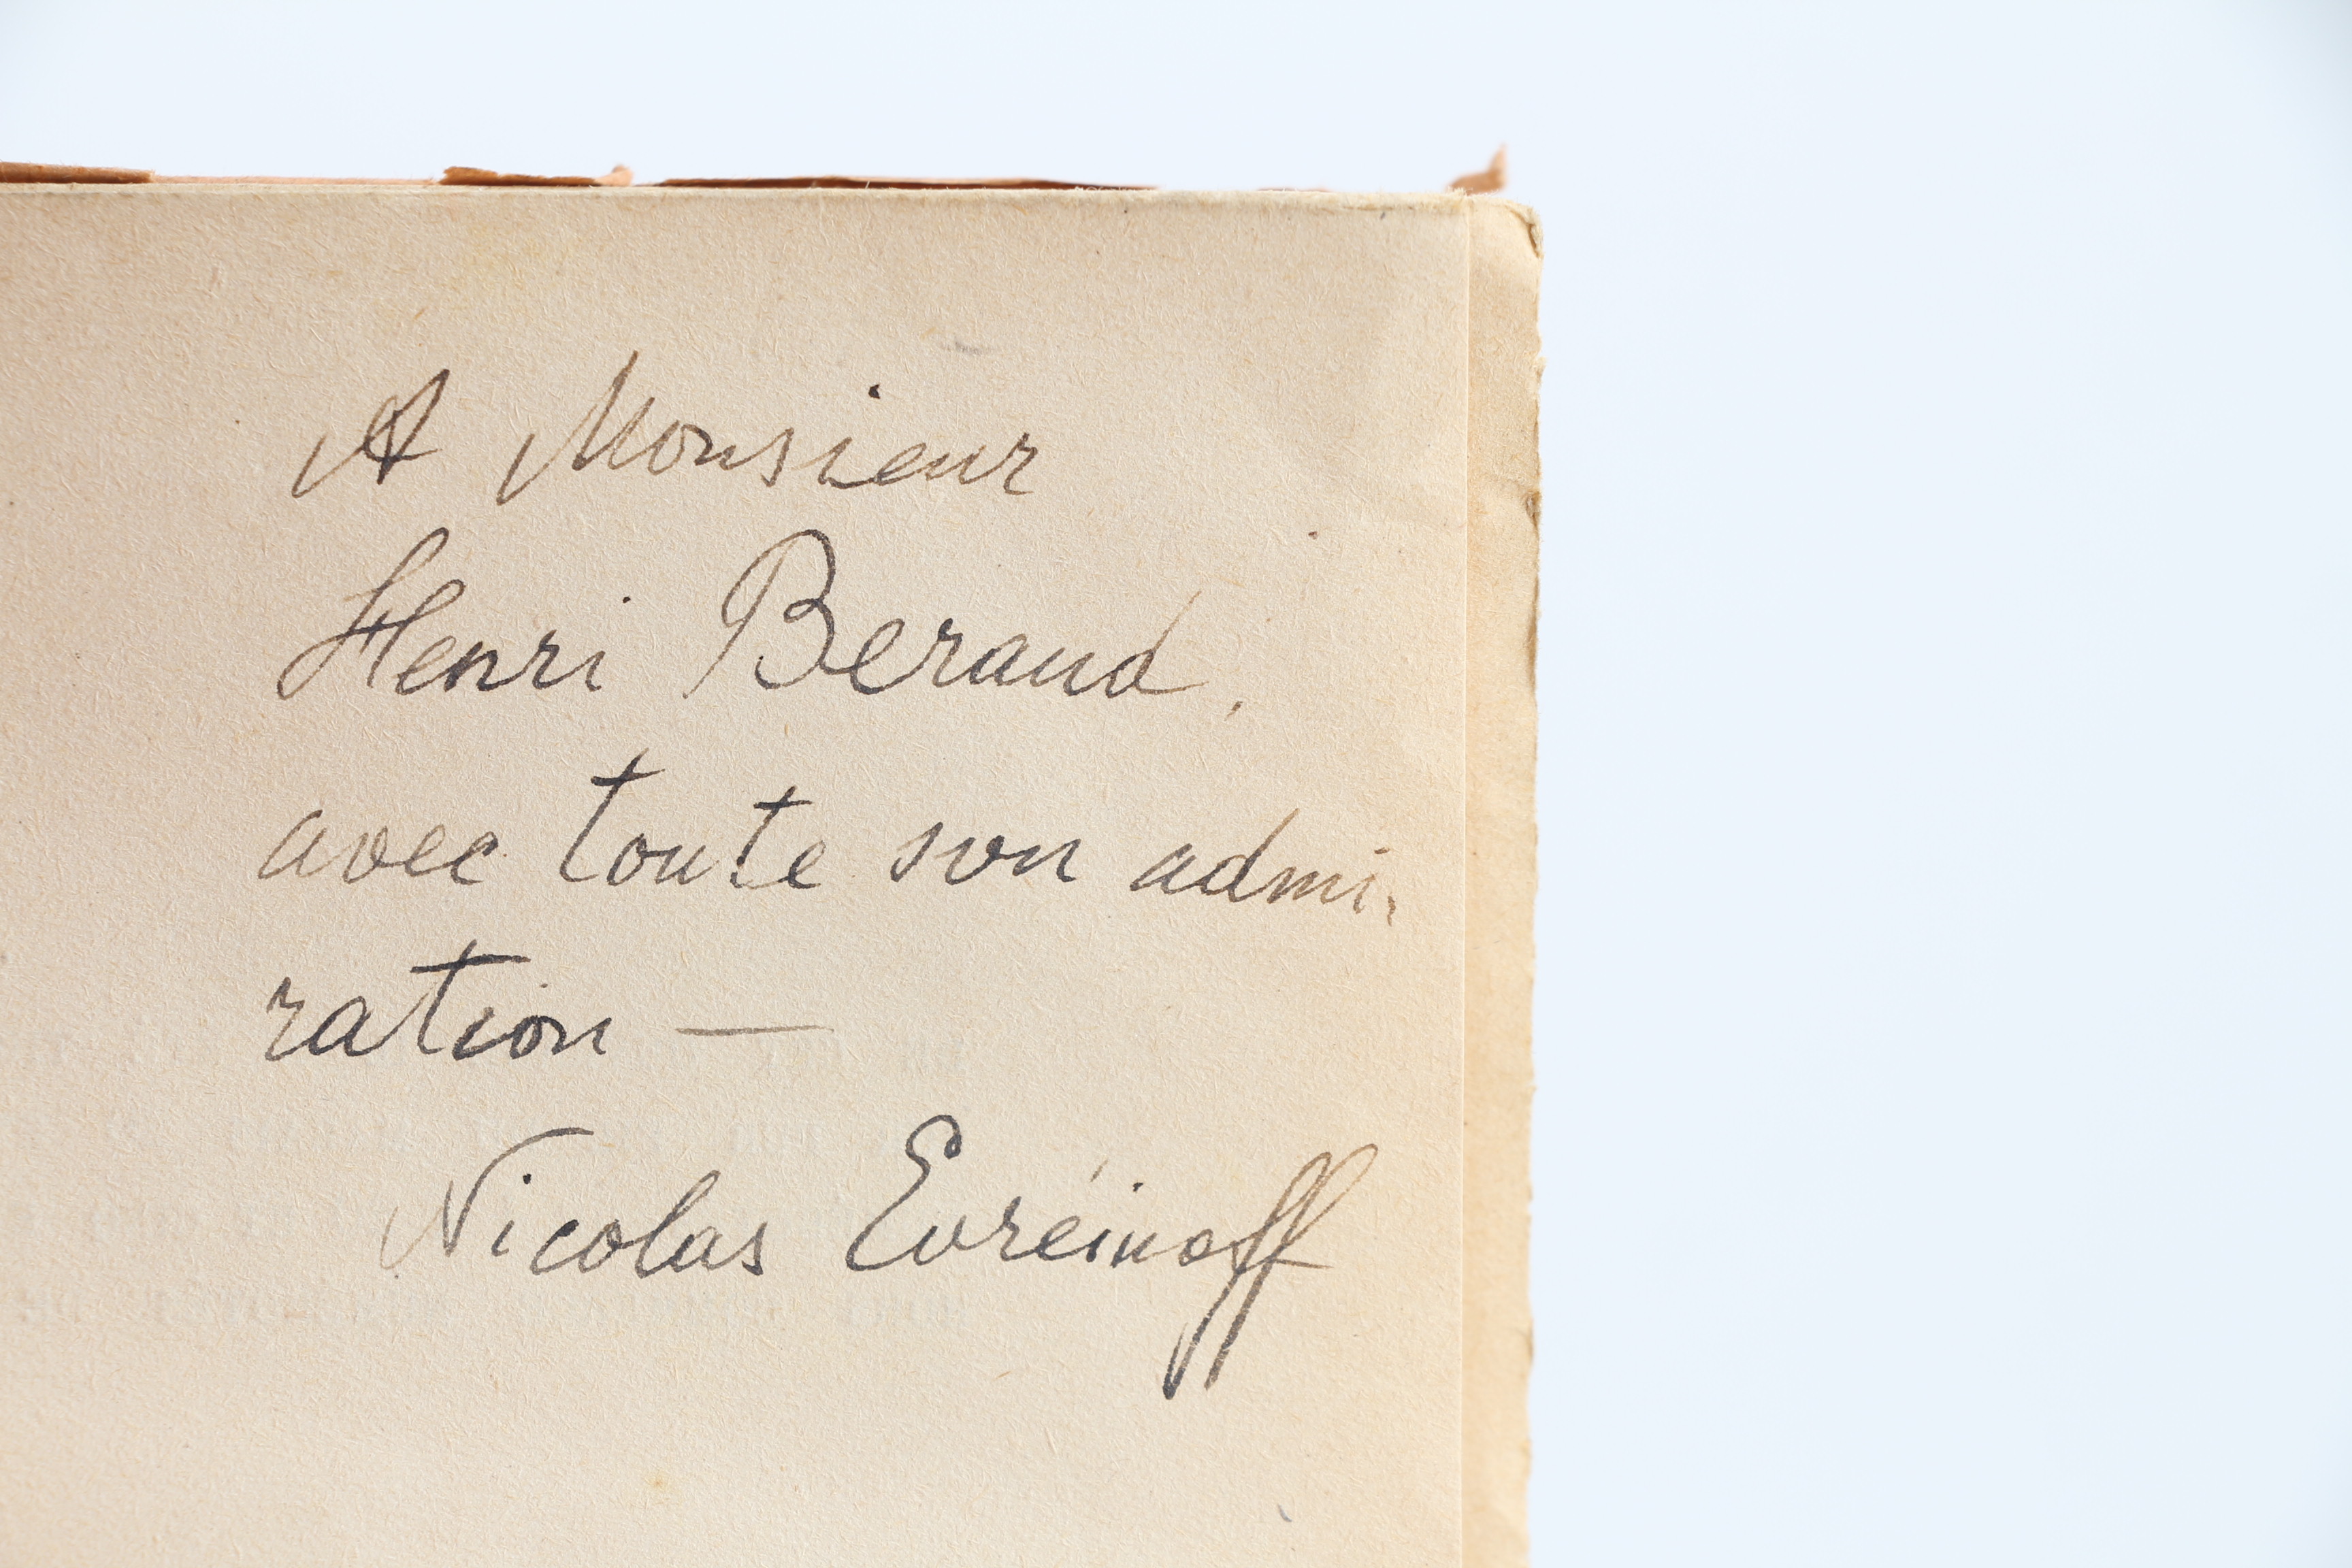 A Monsieur
Henri Beraud,
avec toute son admi-
ration —
Nicolas Evréinoff